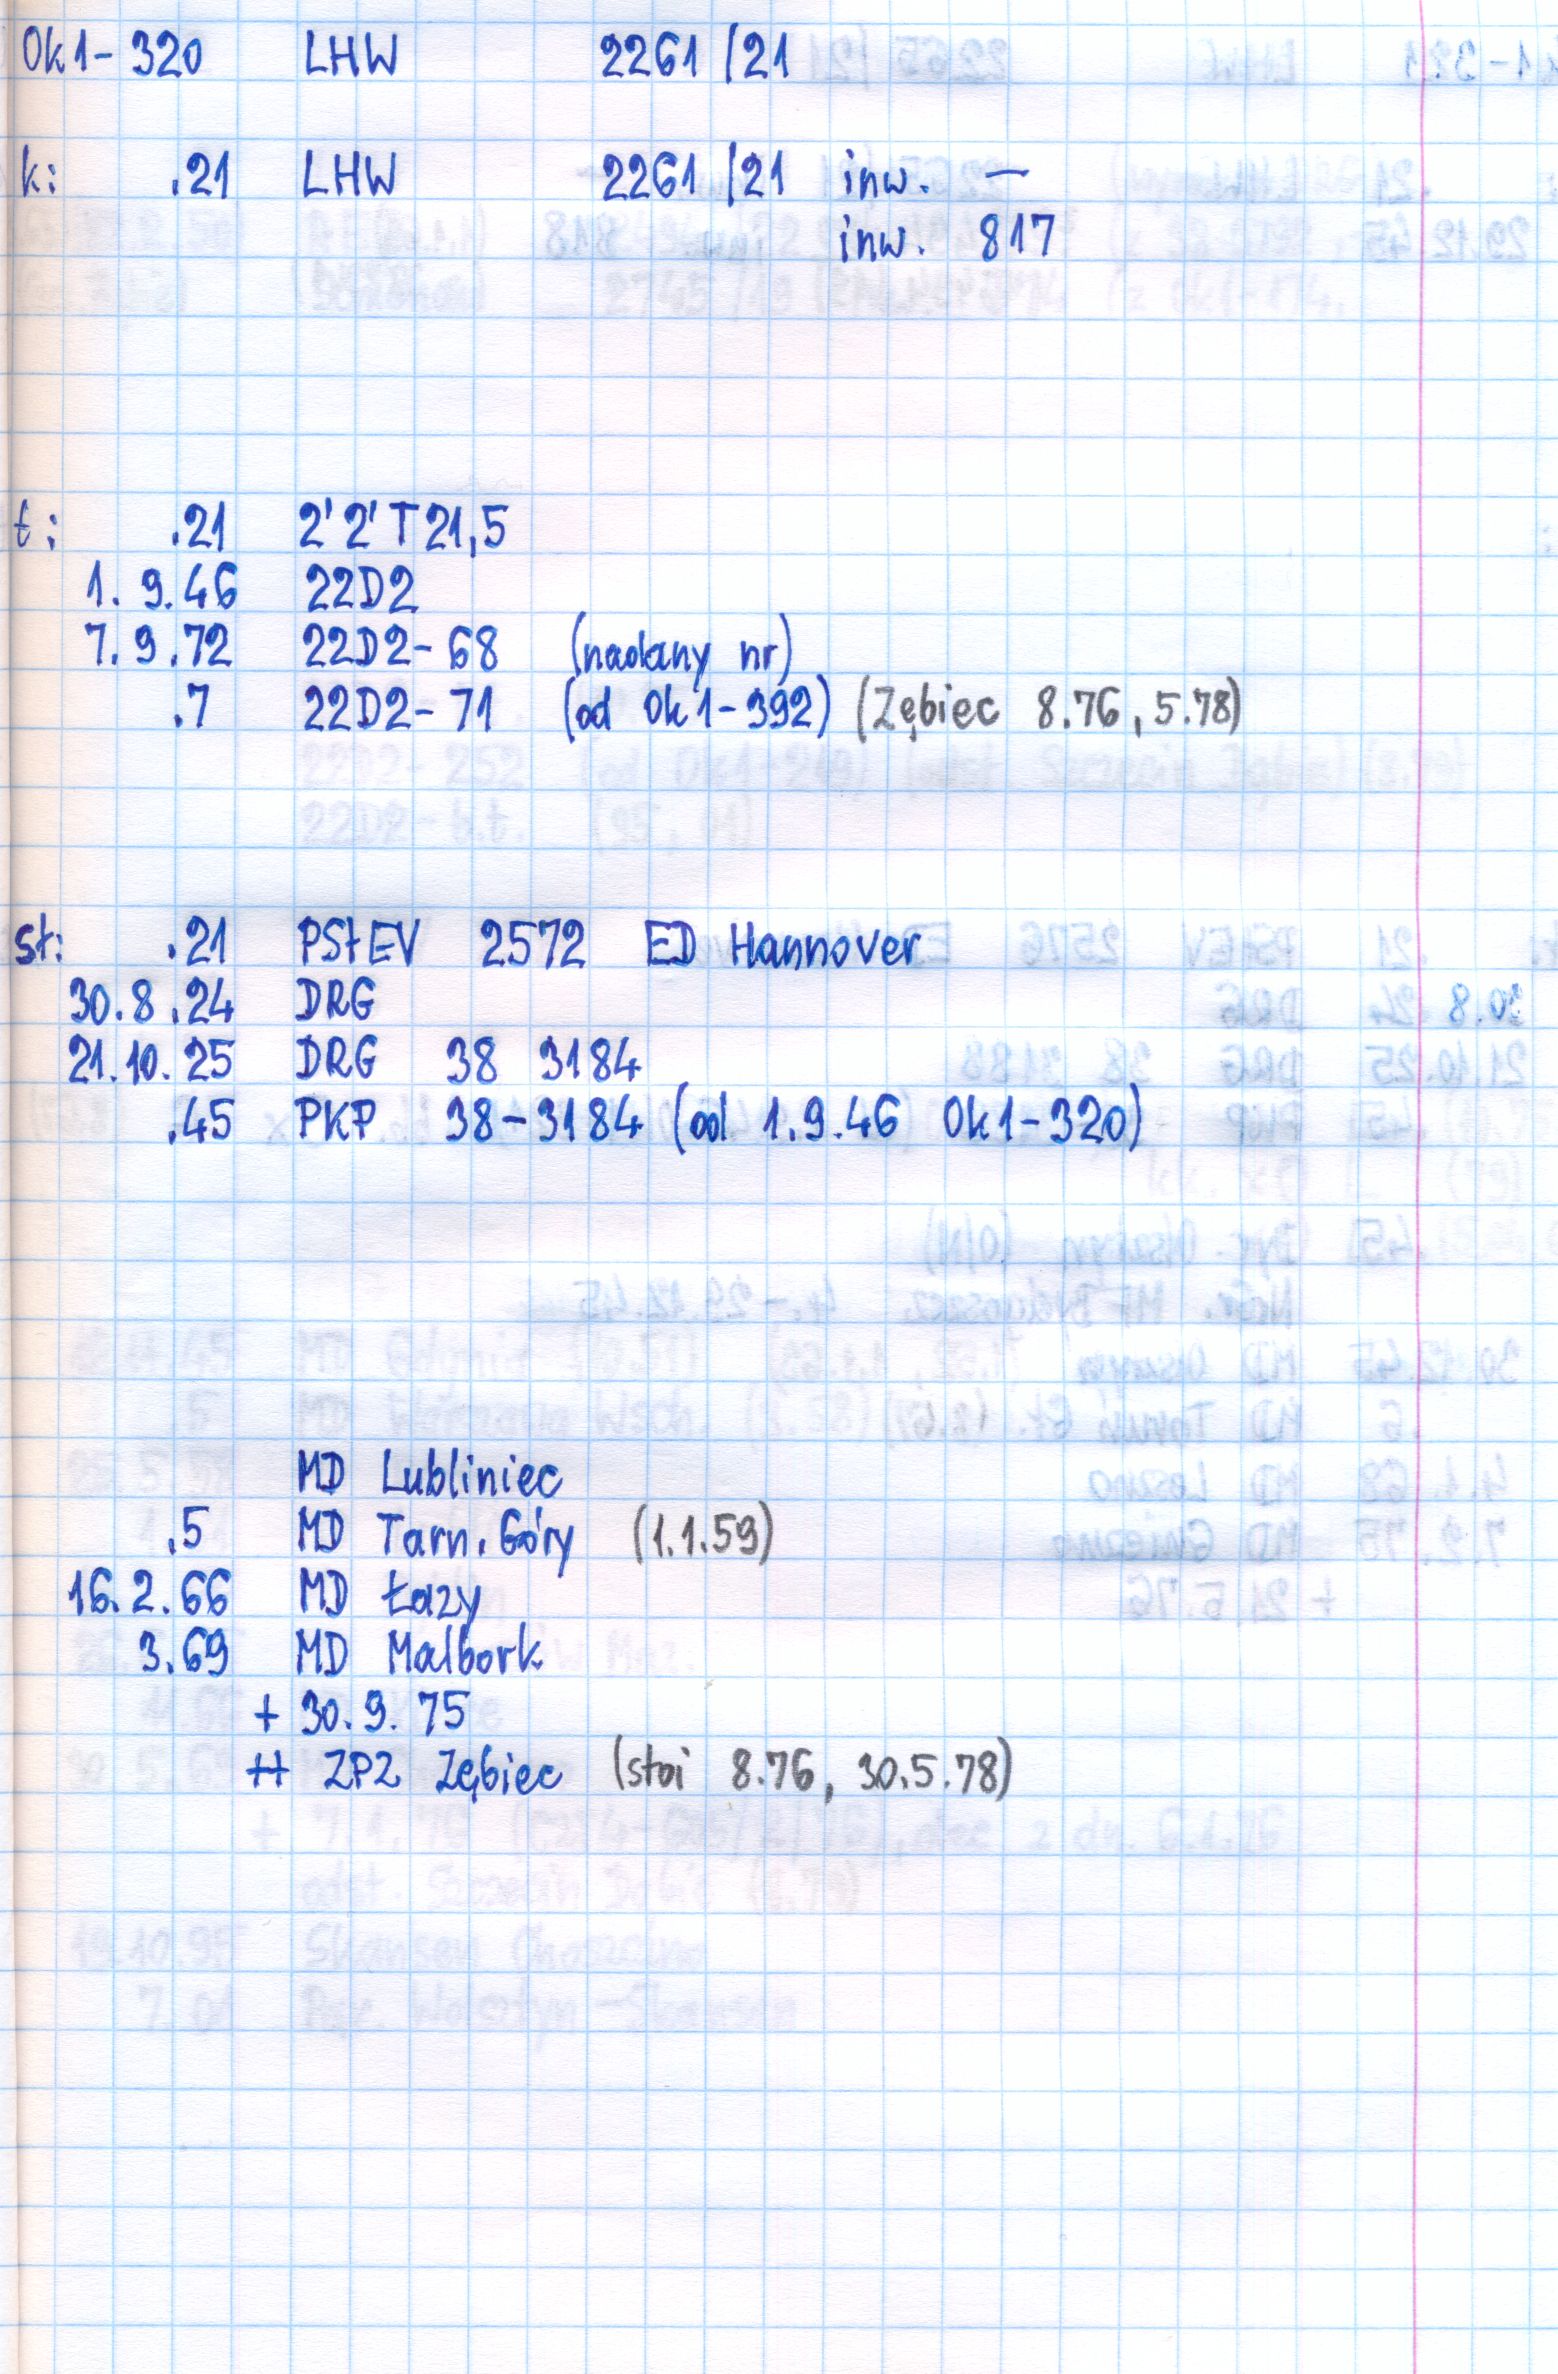 Ok1-320 LHW 2261/21
k: .21 LHW 2261/21 inw. —
inw. 817
t: .21 2'2'T21,5
1.9.46 22D2
7.9.72 22D2-68 (nadany nr)
.7 22D2-71 (od Ok1-392) (Zębiec 8.76, 5.78)
st: .21 PStEV 2572 ED Hannover
30.8.24 DRG
21.10.25 DRG 38 3184
.45 PKP 38-3184 (od 1.9.46 Ok1-320)
MD Lubliniec
.5 MD Tarn. Góry (1.1.59)
16.2.66 MD Łazy
3.69 MD Malbork
+ 30.9.75
++ ZPZ Zębiec (stoi 8.76, 30.5.78)